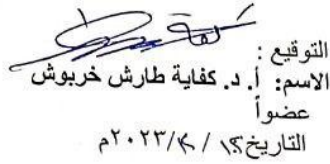 التوقيع :
الاسم: أ. د. كفاية طارش خربوش
عضواً
التاريخ / / ٢٠٢٣م